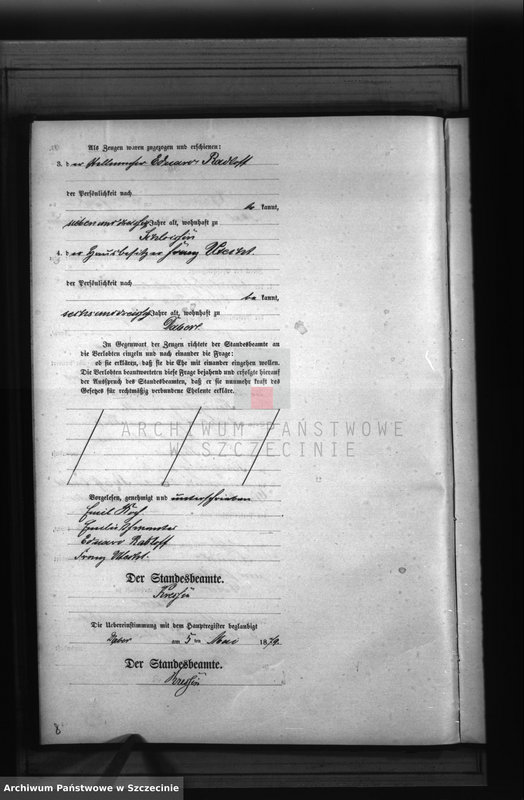 Als Zeugen waren zugezogen und erschienen:
3. der Eduard Radloff
der Persönlichkeit nach
be kannt,
siebenunddreißig Jahre alt, wohnhaft zu
4. der Hausbesitzer Franz
der Persönlichkeit nach
be kannt,
sechsunddreißig Jahre alt, wohnhaft zu
Daber.
In Gegenwart der Zeugen richtete der Standesbeamte an
die Verlobten einzeln und nach einander die Frage:
ob sie erklären, daß sie die Ehe mit einander eingehen wollen.
Die Verlobten beantworteten diese Frage bejahend und erfolgte hierauf
der Ausspruch des Standesbeamten, daß er sie nunmehr kraft des
Gesetzes für rechtmäßig verbundene Eheleute erkläre.
ARCHIWUM PAŃSTWOWE
W SZCZECINIE
Vorgelesen, genehmigt und unterschrieben
Emil Koch.
Emilie
Eduard Radloff
Franz
Der Standesbeamte.
Kressin
Die Uebereinstimmung mit dem Hauptregister beglaubigt
Daber am 5 ten Mai 1879.
Der Standesbeamte.
Kressin
8
Archiwum Państwowe w Szczecinie